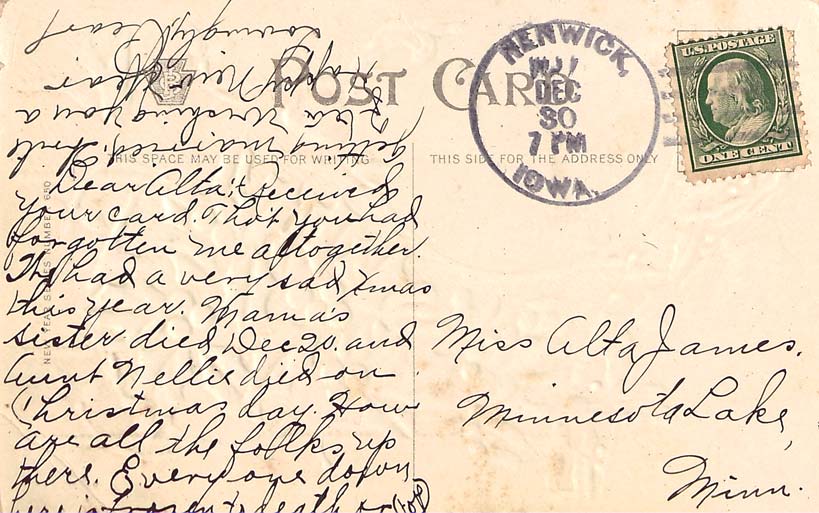 POST CARD
THIS SPACE MAY BE USED FOR WRITING
THIS SIDE FOR THE ADDRESS ONLY
RENWICK,
DEC
30
7 PM
IOWA.
U.S. POSTAGE
ONE CENT
Dear Alta: Received
your card. Thot you had
forgotten me altogether.
had a very sad Xmas
this year. Mama's
sister died Dec 20. and
Aunt Nellie died on
Christmas day. How
are all the folks up
there. Everyone down
here is frozen to death or
getting married.
Wishing you a
Happy New Year
Lovingly Pearl
Miss Alta James.
Minnesota Lake,
Minn.